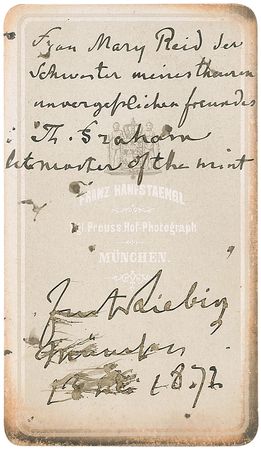 Frau Mary Reid der
Schwester meines theuren
unvergeßlichen freundes
Th. Graham
late master of the mint
FRANZ HANFSTAENGL
Preuss. Hof-Photograph
MÜNCHEN.
Liebig
München
1872